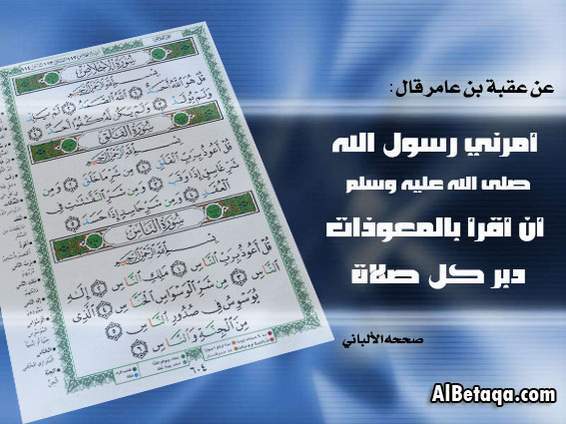 عن عقبة بن عامر قال :
أمرني رسول الله
صلى الله عليه وسلم
أن أقرأ بالمعوذات
دبر كل صلاة
صححه الألباني
سورة الإخلاص
بسم الله الرحمن الرحيم
قل هو الله أحد ١ الله الصمد ٢ لم يلد
ولم يولد ٣ ولم يكن له كفوا أحد ٤
سورة الفلق
بسم الله الرحمن الرحيم
قل أعوذ برب الفلق ١ من شر ما خلق ٢ ومن
شر غاسق إذا وقب ٣ ومن شر النفاثات في
العقد ٤ ومن شر حاسد إذا حسد ٥
سورة الناس
بسم الله الرحمن الرحيم
قل أعوذ برب الناس ١ ملك الناس ٢ إله
الناس ٣ من شر الوسواس الخناس ٤ الذي
يوسوس في صدور الناس ٥
من الجنة والناس ٦
٦٠٤
AlBetaqa.com